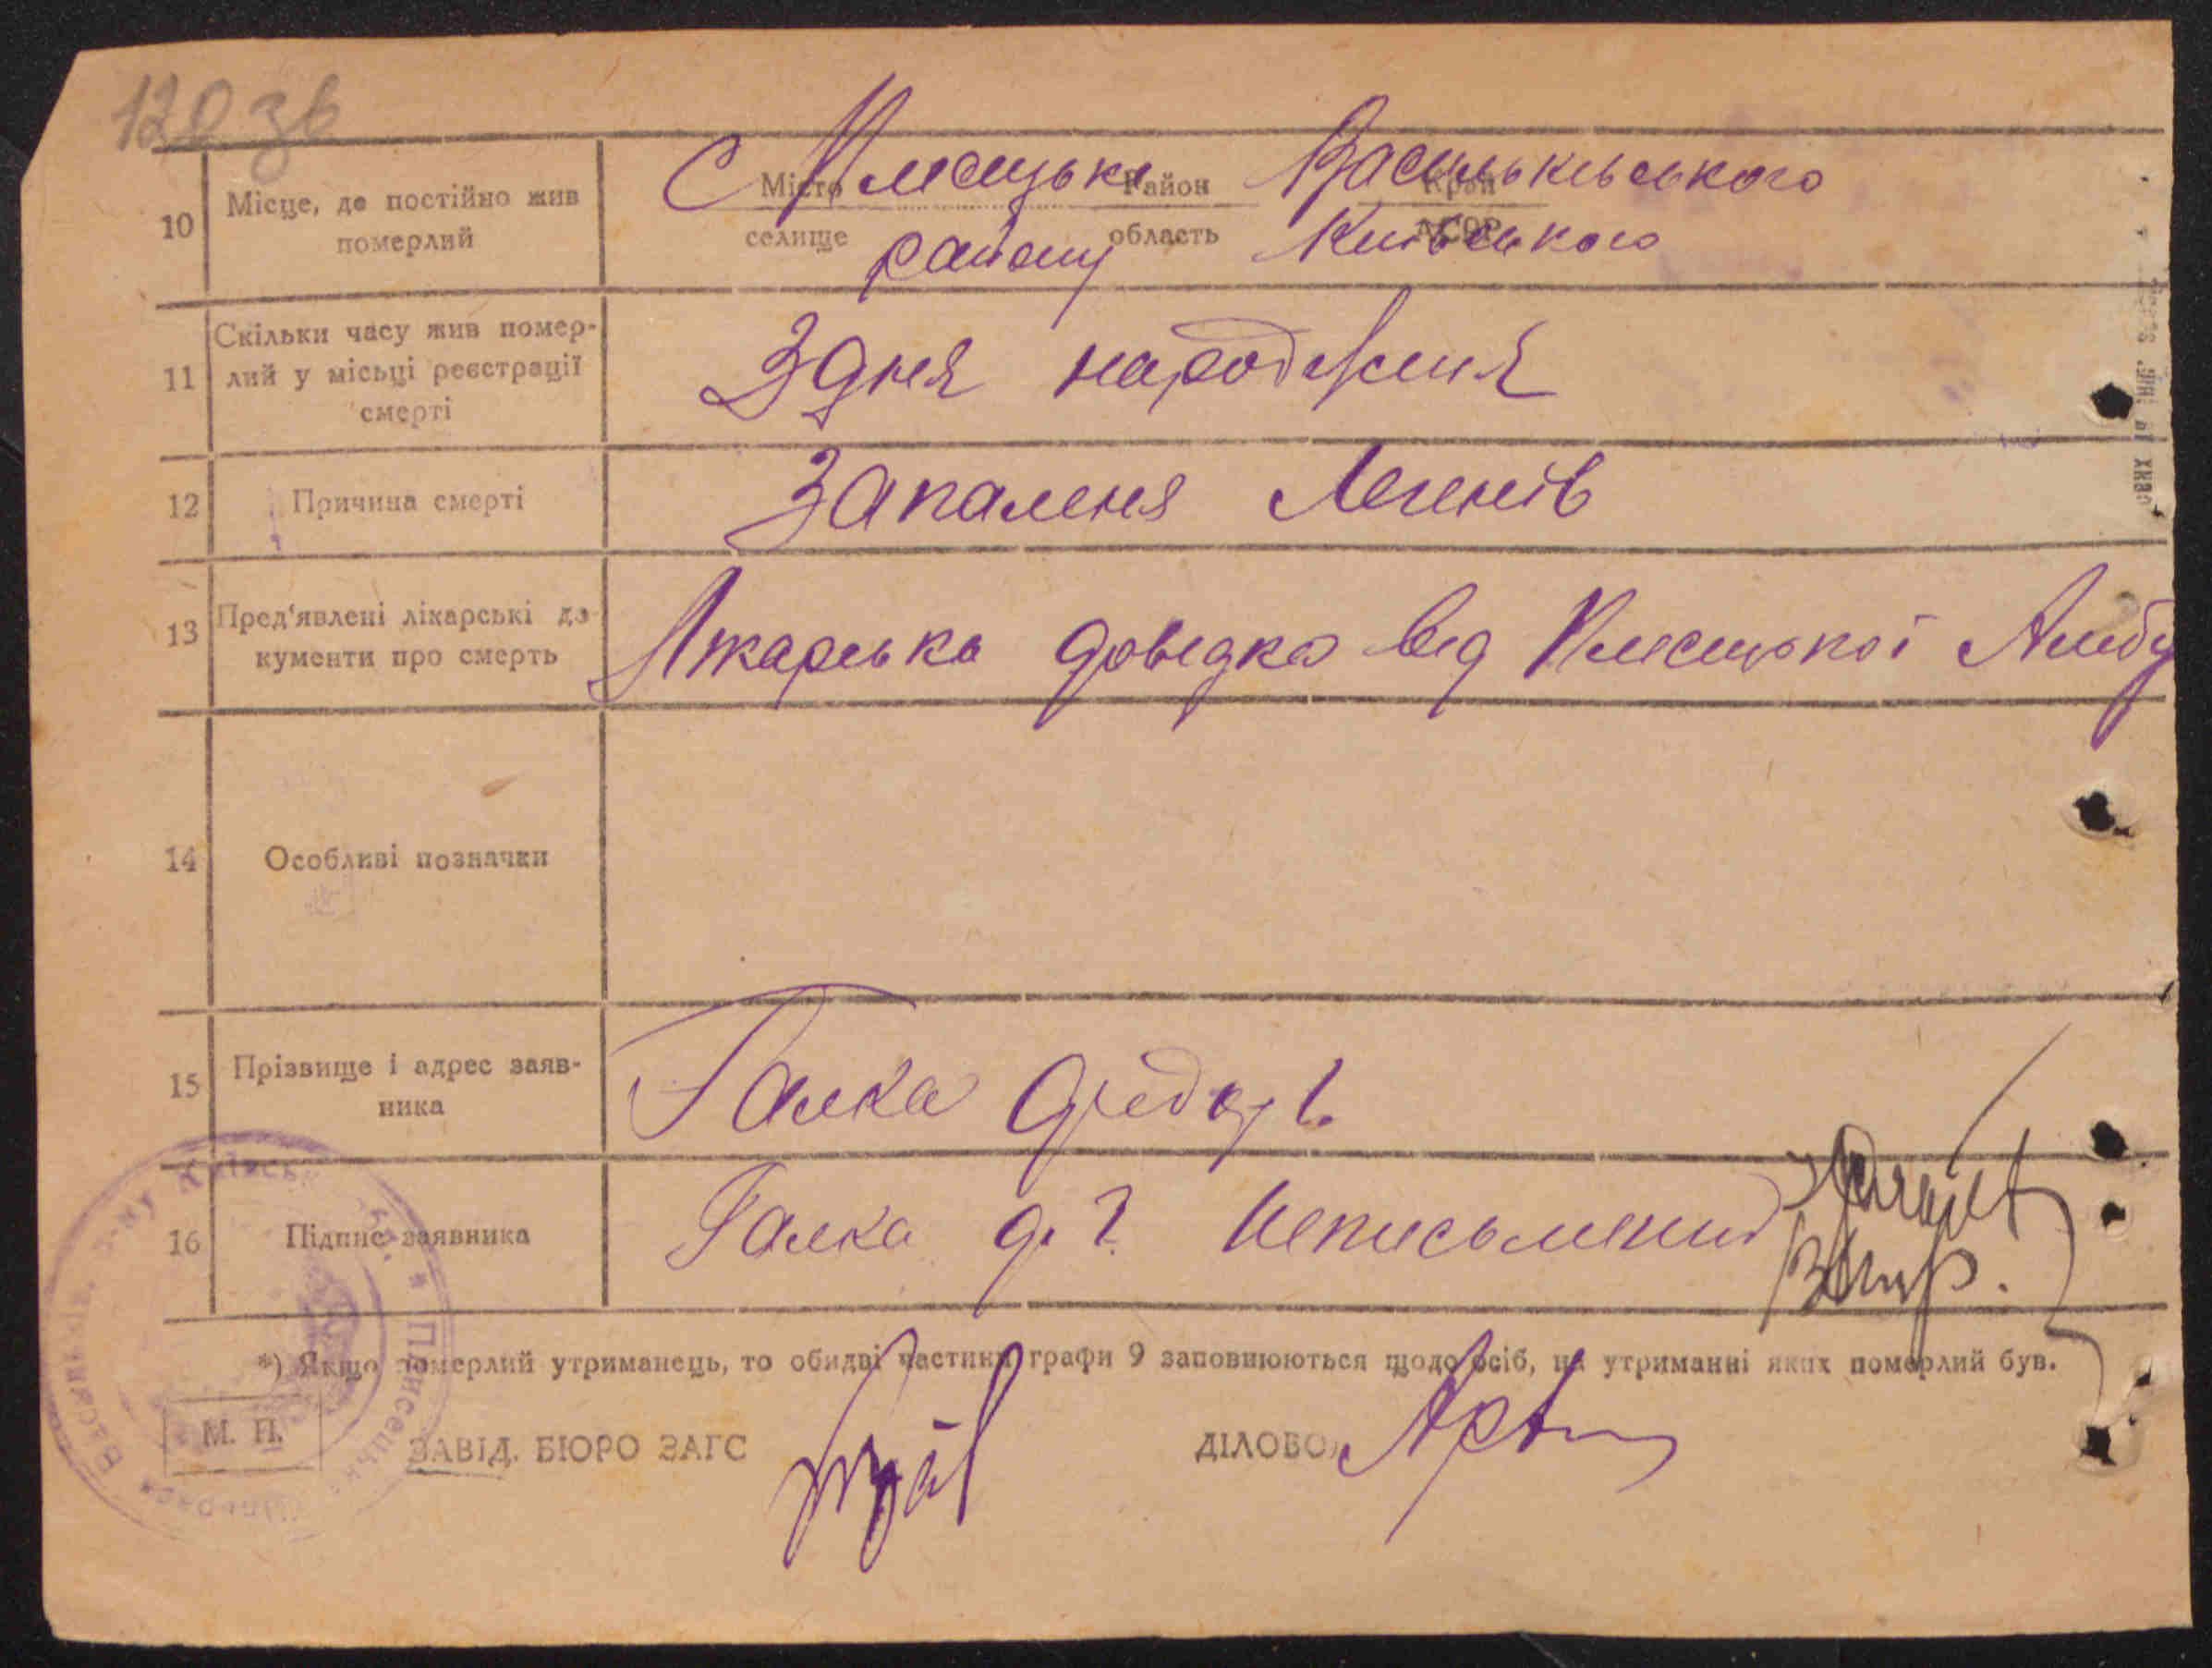 120 зв
10 Місце, де постійно жив померлий
Місто Район Край
селище область АССР
С Плисецьке Васильківського
району Київського
11 Скільки часу жив помер-
лий у місьці реєстрації
смерті
З дня народженя
12 Причина смерті
Запаленя Легенів
13 Пред'явлені лікарські до-
кументи про смерть
Лікарська довідка від Плисецької Амбу
14 Особливі позначки
15 Прізвище і адрес заяв-
ника
Галка Федор
16 Підпис заявника
Галка неписьмений
*) Якщо померлий утриманець, то обидві частини графи 9 заповнюються щодо осіб, на утриманні яких померлий був.
М. П. ЗАВІД. БЮРО ЗАГС ДІЛОВОД